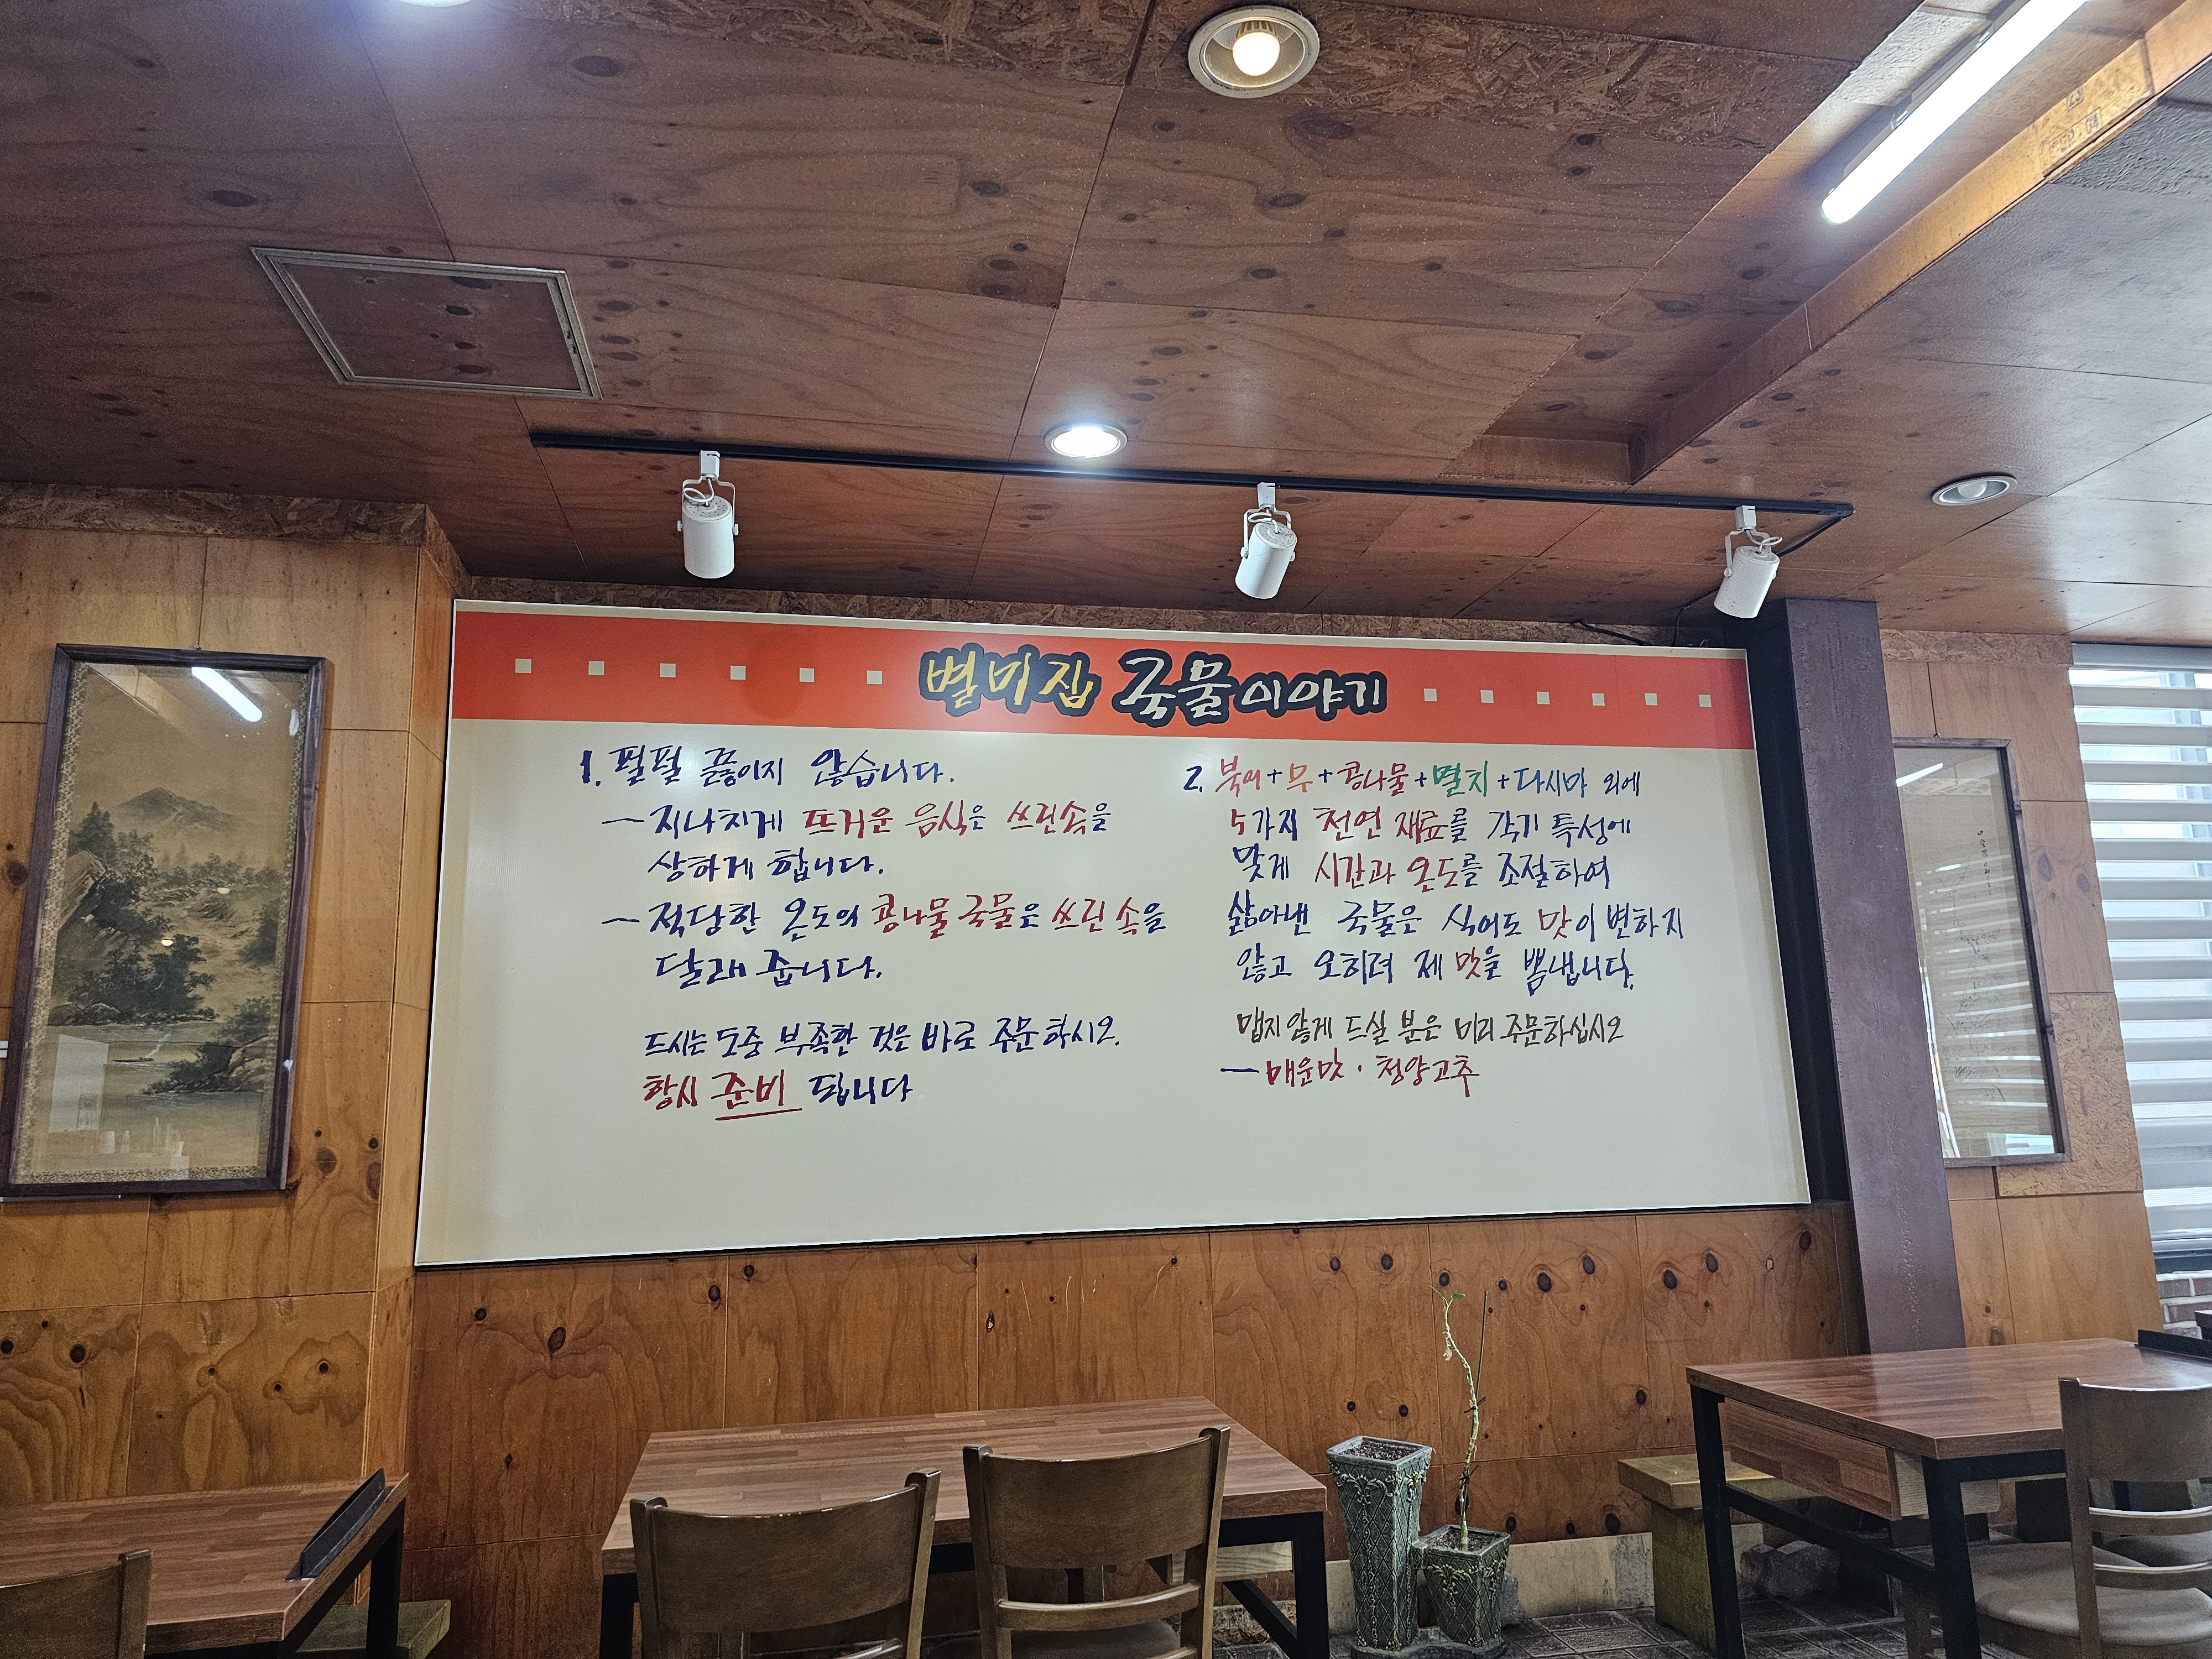 별미집 국물이야기
1. 펄펄 끓이지 않습니다.
— 지나치게 뜨거운 음식은 쓰린속을
상하게 합니다.
— 적당한 온도의 콩나물국물은 쓰린속을
달래 줍니다.
드시는 도중 부족한 것은 바로 주문하시오.
항시 준비 됩니다
2. 북어+무+콩나물+멸치+다시마 외에
5가지 천연 재료를 각기 특성에
맞게 시간과 온도를 조절하여
삶아낸 국물은 식어도 맛이 변하지
않고 오히려 제 맛을 뽐냅니다.
맵지않게 드실 분은 미리 주문하십시오
— 매운맛 · 청양고추